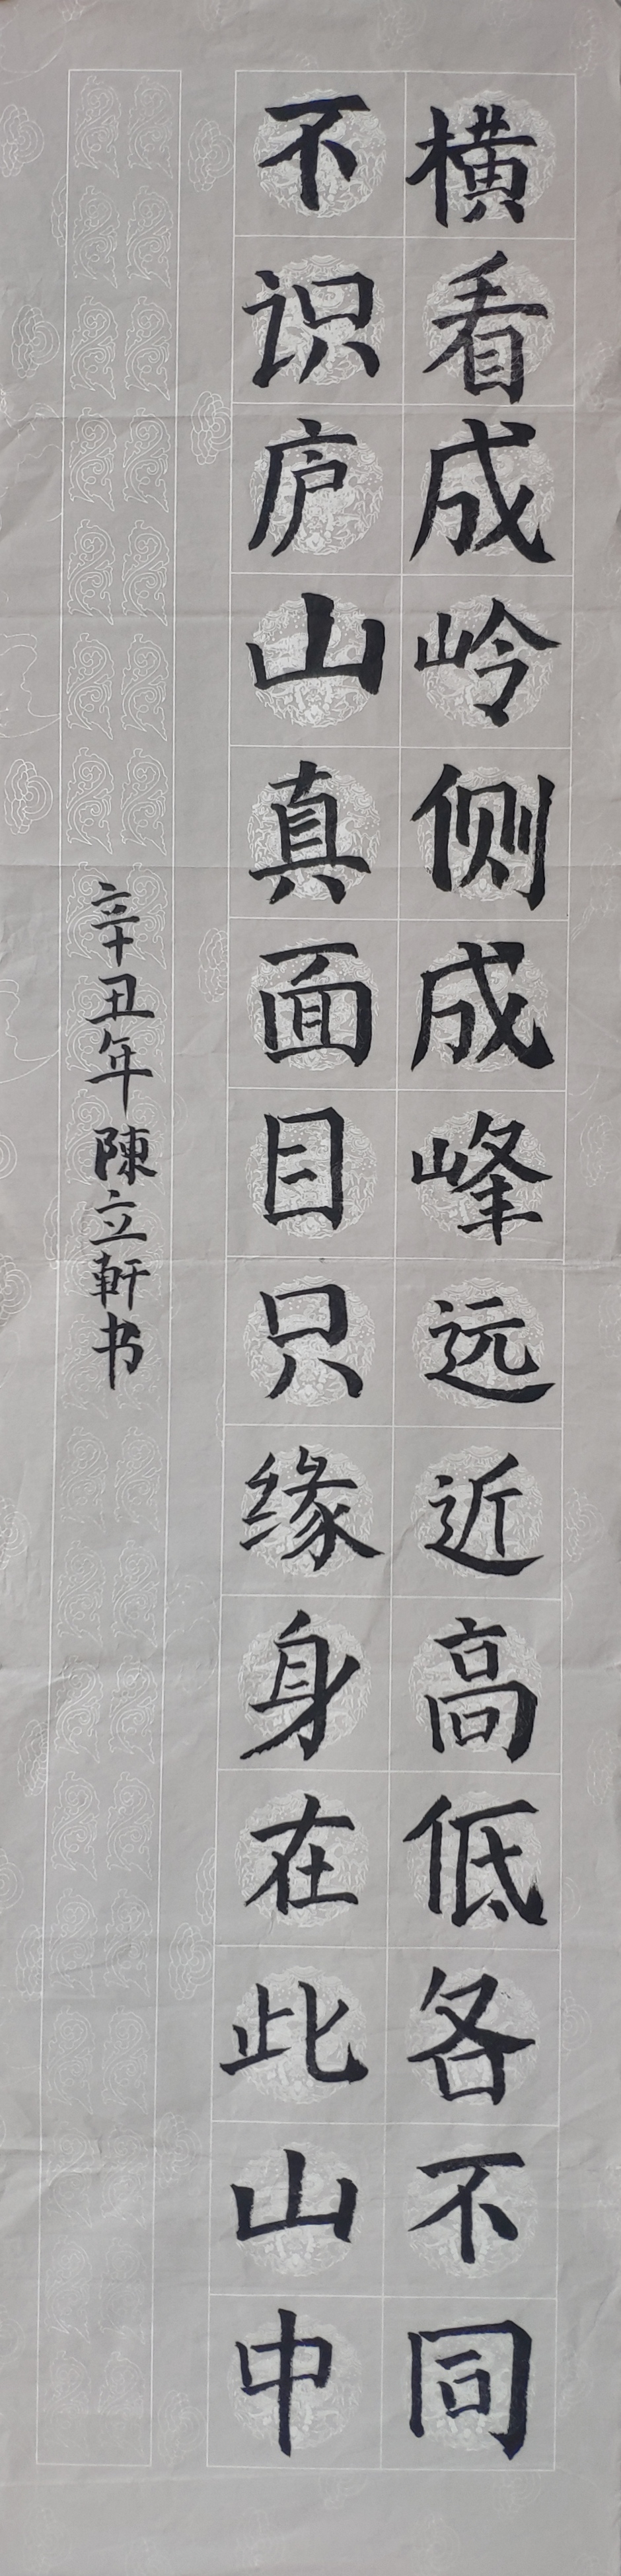 横看成岭侧成峰远近高低各不同
不识庐山真面目只缘身在此山中
辛丑年陳立軒书